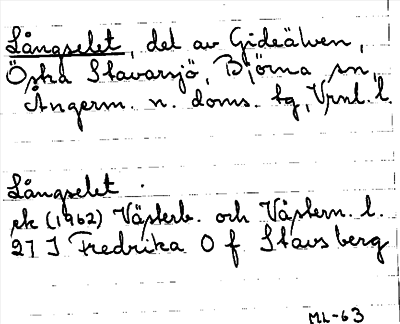 Långselet, del av Gideälven,
Östra Stavarsjö, Björna sn,
Ångerm. n. doms. tg, Vrnl. l.
Långselet.
ek (1962) Västerb. och Västern. l.
27 J Fredrika O f Stavsberg
ML-63